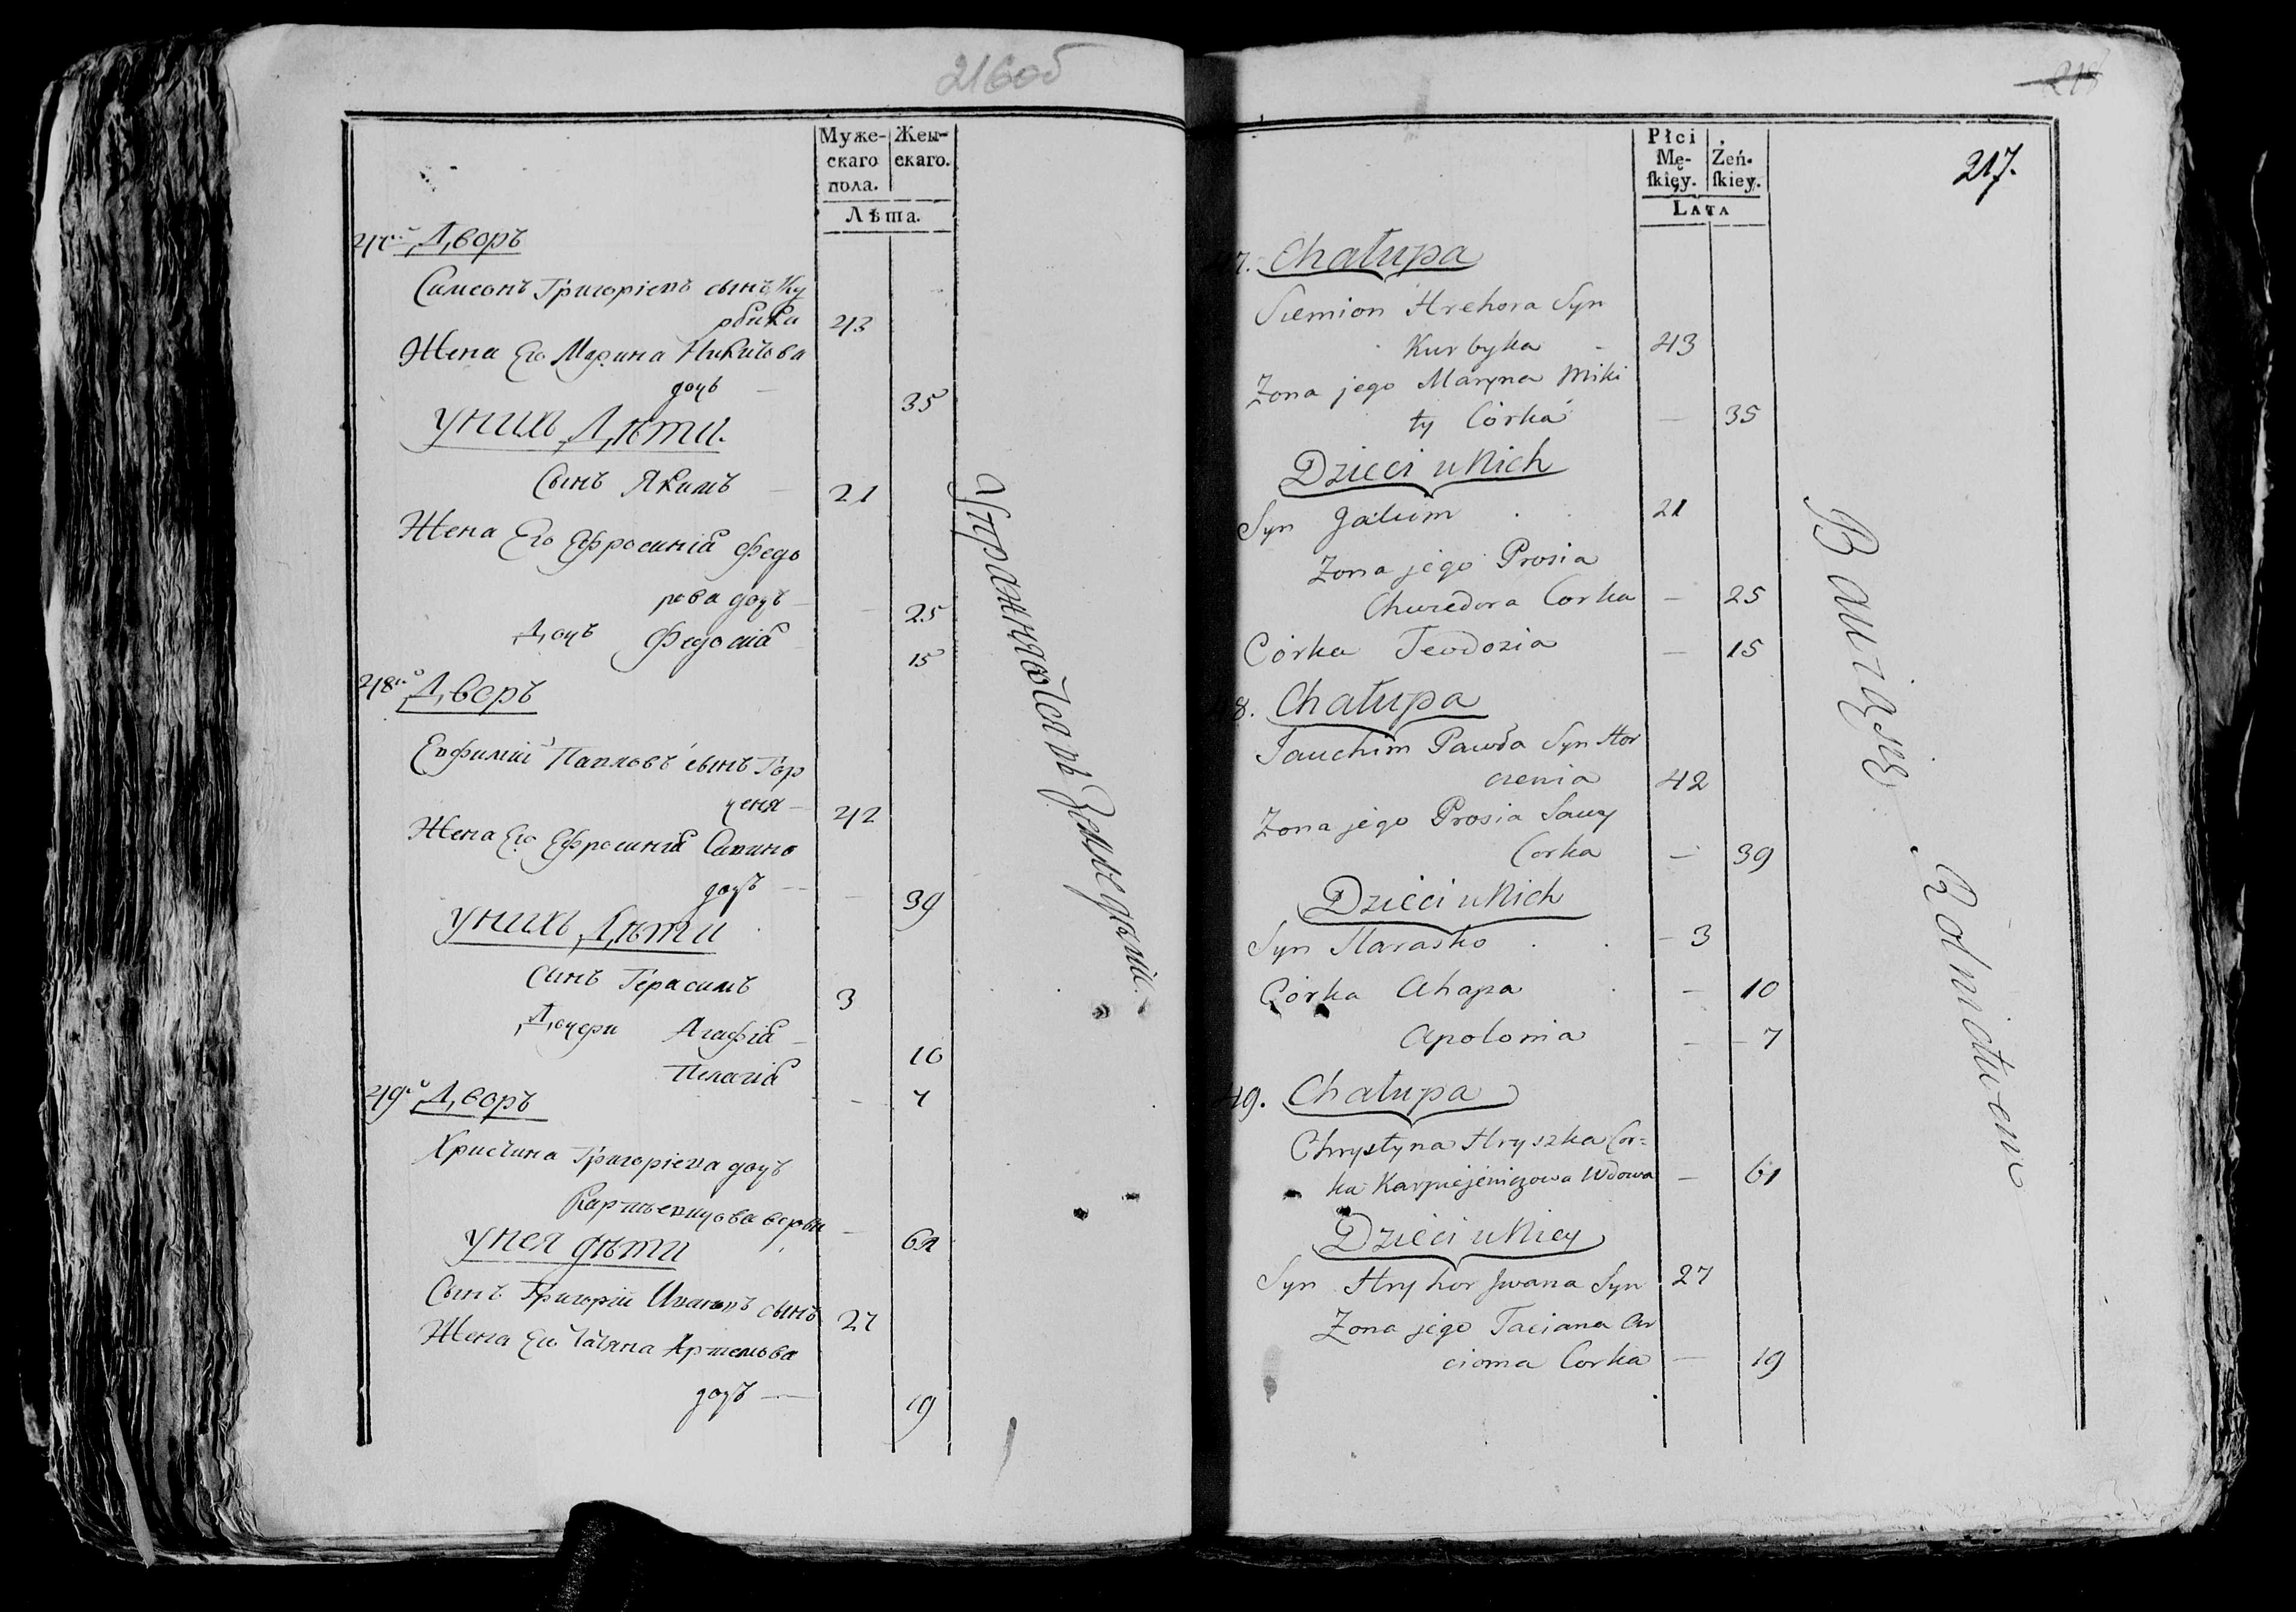 216об
Муже-
скаго
пола.
Жен-
скаго.
Лѣта.
47й Дворъ
Симеонъ Григоріевъ сынъ Ку
рбыка 43
Жена Его Марина Никитова
дочь — 35
У них Дѣти.
Сынъ Якимъ — 21
Жена Его Ефросинія Федо
рова дочь — 25
Дочь Федосія 15
48й Дворъ
Евфимій Павловъ сынъ Гор
ченя — 42
Жена Его Ефросинія Савина
дочь — — 39
У нихъ Дѣти
Сынъ Герасимъ 3
Дочери Агафія — 10
Пелагія — 7
49й Дворъ
Христина Григоріева дочь
— 61
У нея дѣти
Сынъ Григорій Ивановъ сынъ 27
Жена Его Татяна Артемова
дочь — 19
Земледѣліи.
218
217.
Płci
Mę-
ſkiey.
Żeń-
ſkiey.
Lata
47. Chałupa
Siemion Hrehora Syn
Kurbyka - 43
Zona jego Maryna Miki
ty Córka — 35
Dzieci u Nich
Syn Jakim . . 21
Zona jego Prosia
Chwedora Corka — 25
Córka Teodozia — 15
48. Chałupa
Jauchim Pawła Syn Hor
czenia 42
Zona jego Prosia Sawy
Corka — 39
Dzieci u Nich
Syn Harasko . . - 3
Córka Ahapa . — 10
Apolonia - - 7
49. Chałupa
Chrystyna Hryszka Cor=
ka Karpiejewiczowa Wdowa — 61
Dzieci u Niey
Syn Hryhor Jwana Syn 27
Zona jego Taciana Ar
cioma Corka — 19
Bawią się Rolnictwem